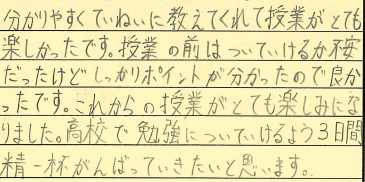 分かりやすくていねいに教えてくれて授業がとても
楽しかったです。授業の前はついていけるか不安
だったけどしっかりポイントが分かったので良か
ったです。これからの授業がとても楽しみにな
りました。高校で勉強についていけるよう3日間
精一杯がんばっていきたいと思います。